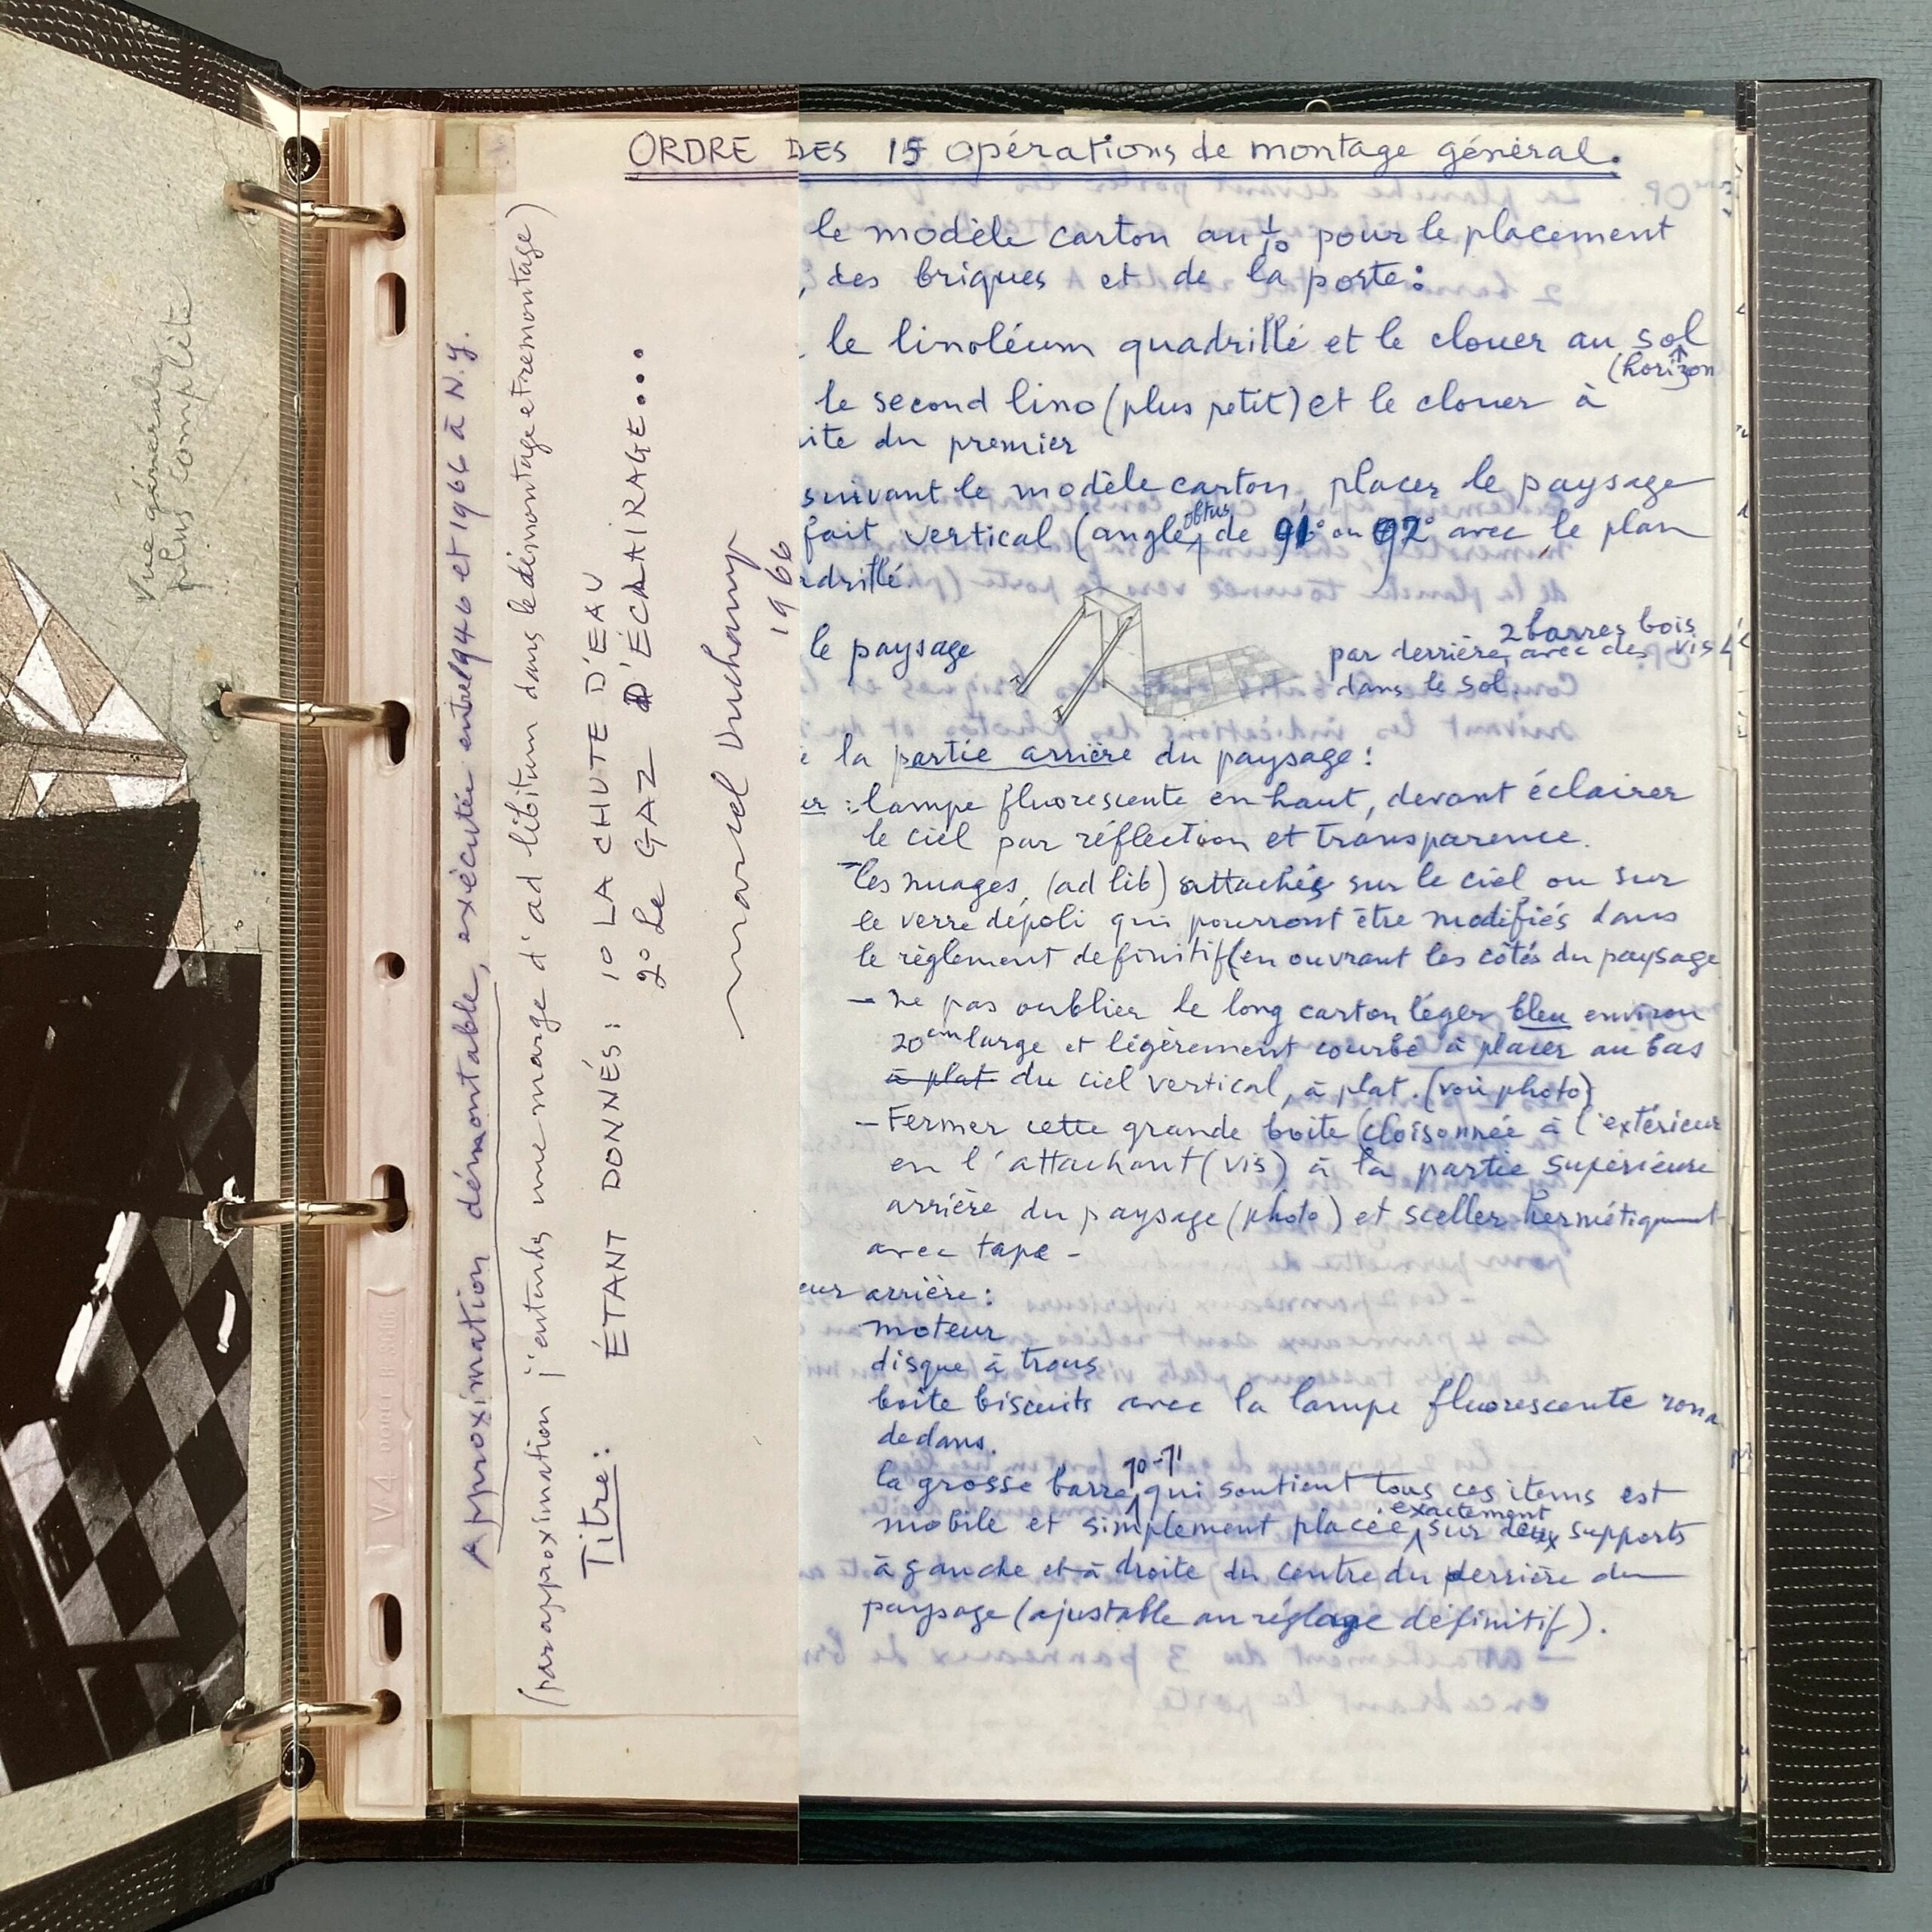 vue générale
plus complète
Approximation démontable, exécutée entre 1946 et 1966 à N.Y.
(par approximation j'entends une marge d'ad libitum dans le démontage et remontage)
Titre: ÉTANT DONNÉS: 1º LA CHUTE D'EAU
2º Le GAZ D'ÉCLAIRAGE...
marcel Duchamp
1966
ORDRE DES 15 opérations de montage général.
le modèle carton au 1/10 pour le placement
des briques et de la porte:
le linoléum quadrillé et le clouer au sol
(horizon
le second lino (plus petit) et le clouer à
ite du premier
suivant le modèle carton, placer le paysage
fait vertical (angle obtus de 91° ou 92° avec le plan
adrillé
le paysage
par derrière, 2 barres bois avec des vis
dans le sol
la partie arrière du paysage:
er: lampe fluorescente en haut, devant éclairer
le ciel par réflection et transparence.
-les nuages, (ad lib) attachés sur le ciel ou sur
le verre dépoli qui pourront être modifiés dans
le règlement definitif (en ouvrant les côtés du paysage
- ne pas oublier le long carton léger bleu environ
20 cm large et légèrement courbé à placer au bas
à plat du ciel vertical, à plat. (voir photo)
- Fermer cette grande boite (cloisonnée à l'extérieur
en l'attachant (vis) à la partie supérieure
arrière du paysage (photo) et sceller hermétiquement
avec tape -
eur arrière:
moteur
disque à trous
boîte biscuits avec la lampe fluorescente ron
dedans.
la grosse barre 70-71 qui soutient tous ces items est
mobile et simplement placée exactement sur deux supports
à gauche et à droite du centre du derrière du
paysage (ajustable au réglage définitif).
V4